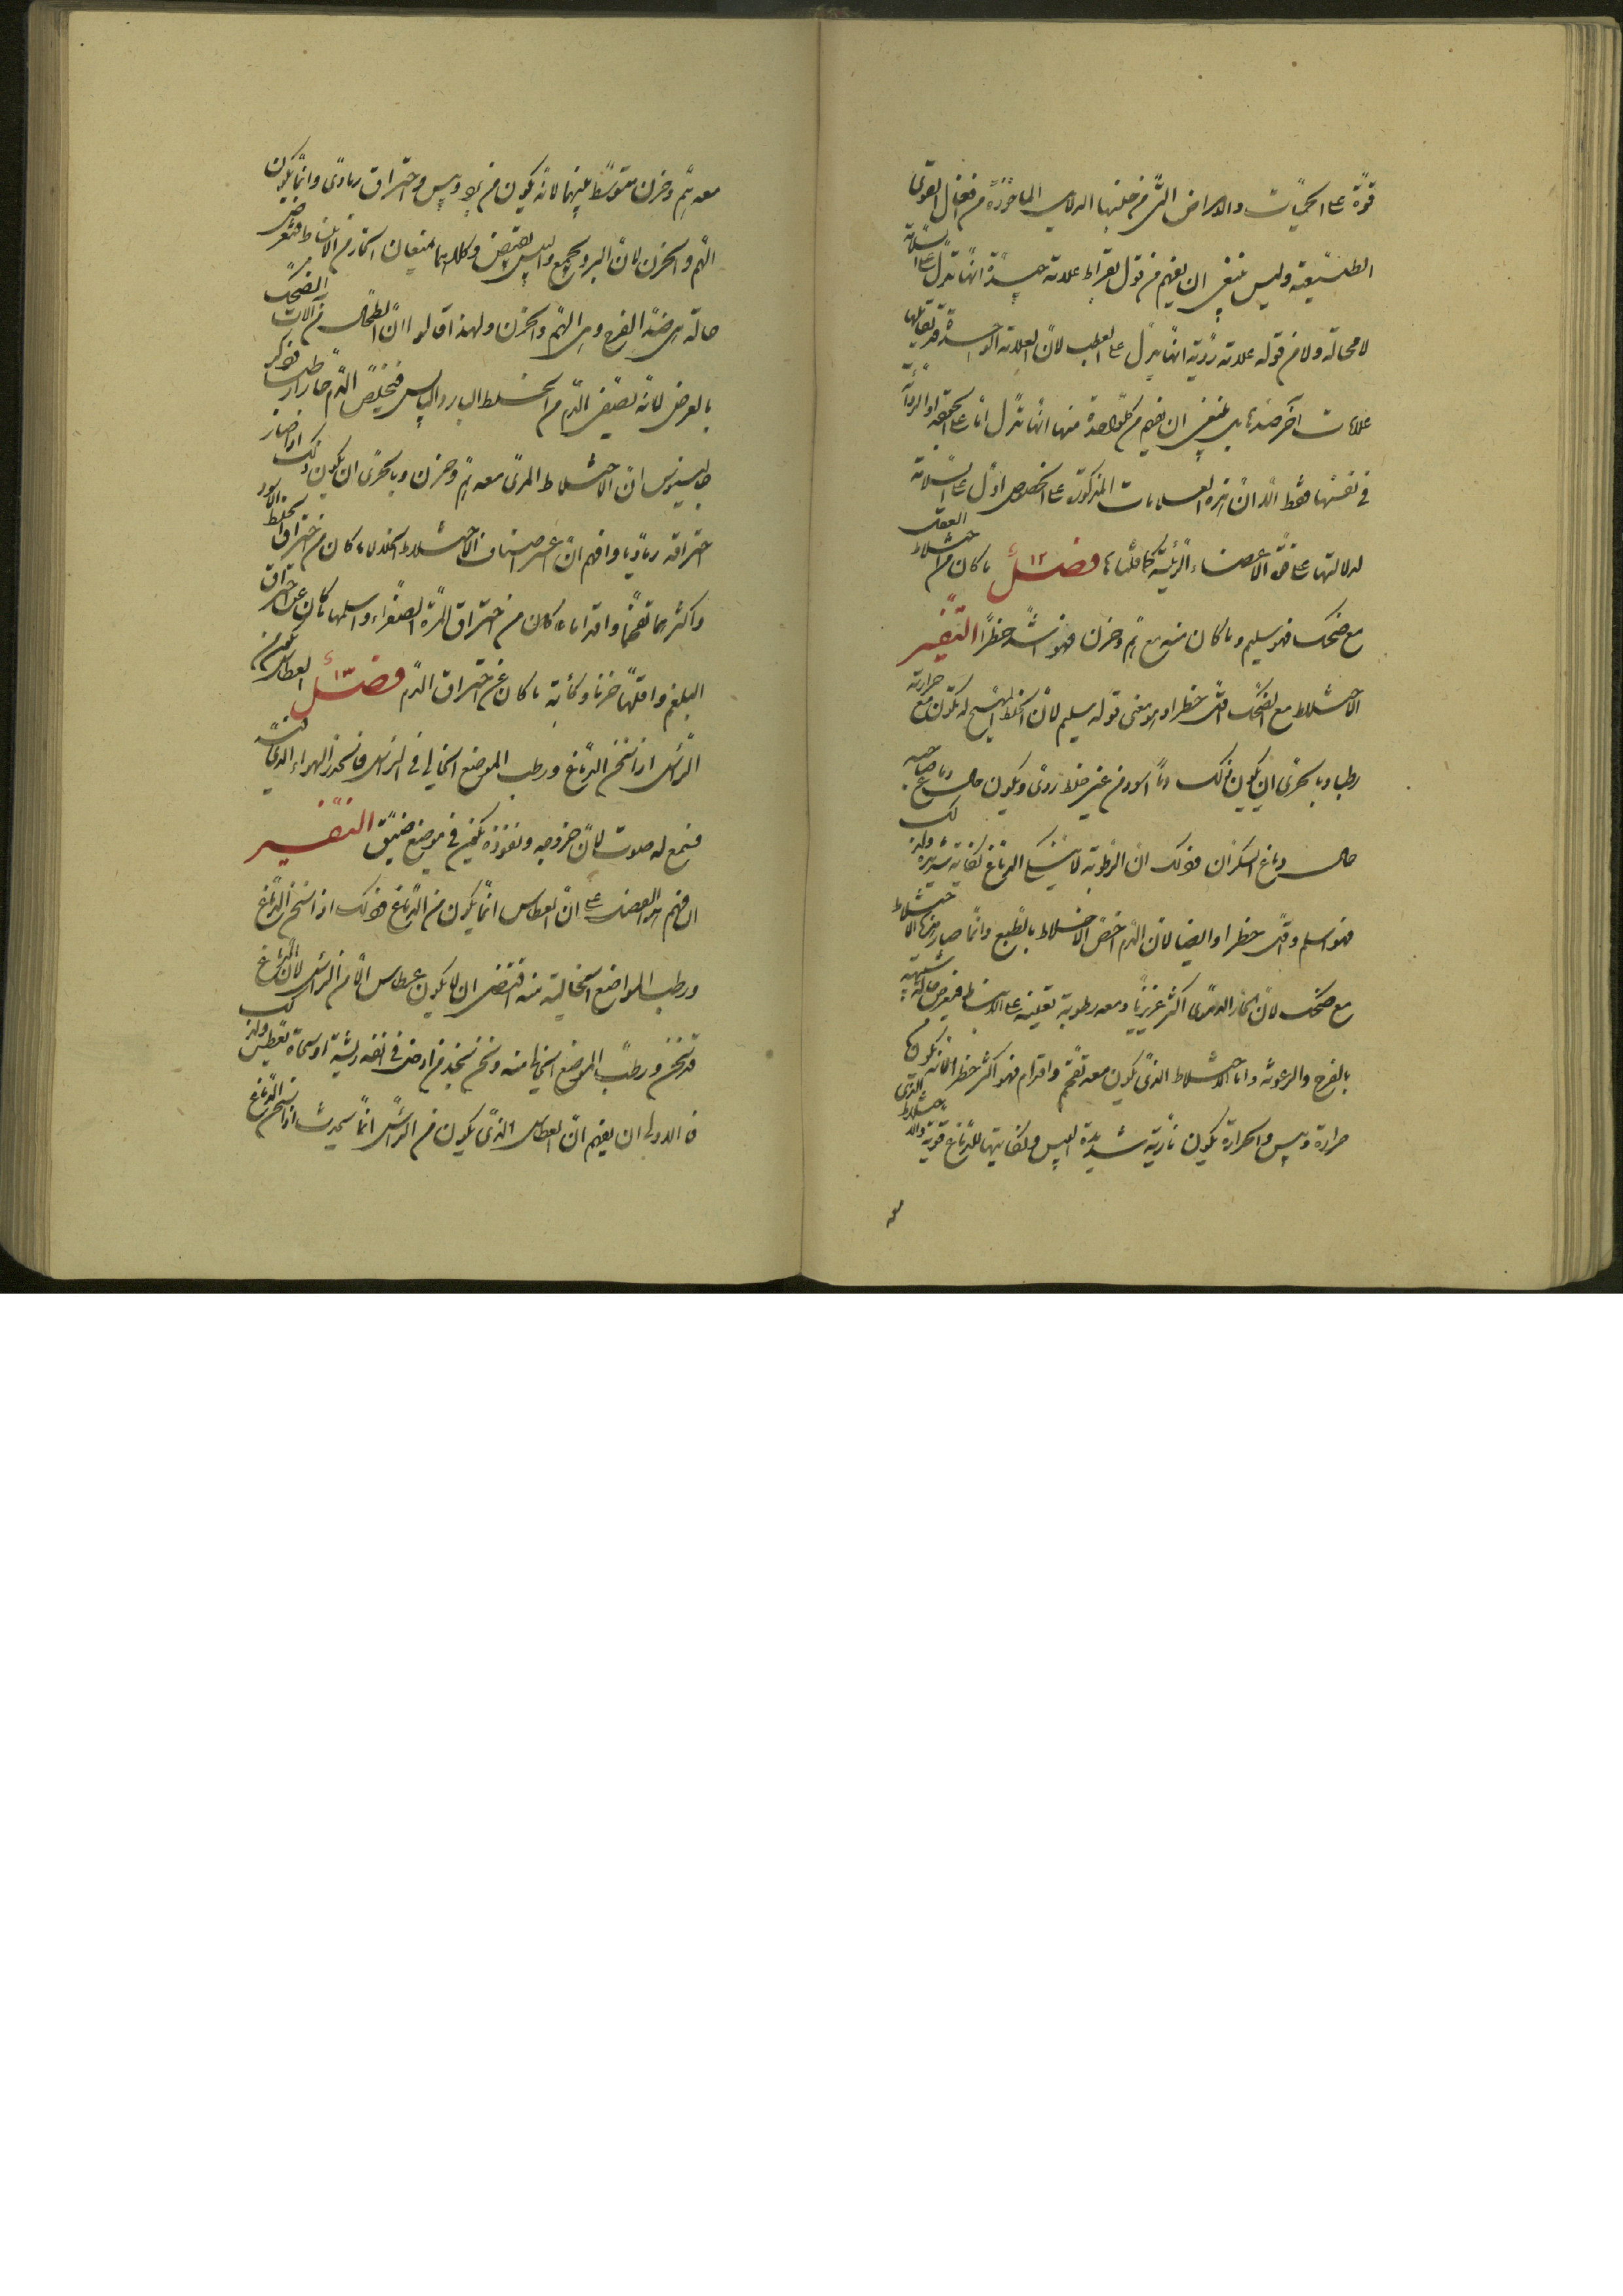 قوة على الحميات والامراض التي من جنسها الدلايل الماخوذة من افعال القوى
الطبيعية وليس ينبغي ان يفهم من قول بقراط علامة جيدة انها تدل على السلامة
لا محالة ولا من قوله علامة ردية انها تدل على العطب لان العلامة الواحدة قد يقابلها
علامات آخر ضدها بل ينبغي ان يفهم من كل واحدة منها انها تدل اما على الجودة او الرداءة
في نفسها فقط الا ان هذه العلامات المذكورة على الخصوص اول على السلامة
لدلالتها على قوة الاعضاء الرئيسة كما قلنا فصل ١٢ ما كان من اختلاط العقل
مع ضحك فهو سليم وما كان منه مع هم وحزن فهو اشد خطرا التفسير
الاختلاط مع الضحك اقل خطرا وهو معنى قوله سليم لان الخلط المهيج له تكون مع حرارته
رطبا وبالحرى ان يكون ذلك دما اسود من غير خلط ردى ويكون حال دماغ صاحبه
حال دماغ السكران فذلك ان الرطوبة لا ينكى الدماغ نكاية شديدة ولذلك
فهو اسلم واقل خطرا وايضا لان الدم اخص الاخلاط بالطبع وانما صار هذا الاختلاط
مع ضحك لان البخار الدموى اكثر غريزيا ومعه رطوبة تعينه على الانبساط فيعرض حالة شبيهة
بالفرح والرعونة واما الاختلاط الذى يكون معه تقحم واقدام فهو اكثر خطرا لانه يكون من
حرارة ويبس والحرارة يكون نارية شديدة اليبس ونكايتها للدماغ قوية والاختلاط الذى
معه
معه هم وحزن متوسط بينهما لانه يكون من برد ويبس واحتراق رمادى وانما يكون
الهم والحزن لان البرد يجمع واليبس يقبض وكلاهما يمنعان البخار من الانبساط فتعرض
حالة هى ضد الفرح وهى الهم والحزن ولهذا قالوا ان الطحال من آلات الضحك
بالعرض لانه يصفى الدم من الخلط البارد اليابس فيخلص الدم حارا رطبا فذكر
جالينوس ان الاختلاط الذى معه هم وحزن وبالحرى ان يكون ذلك اذا صار
احتراقه رماديا وافهم ان اعسر اصناف الاختلاط انحلالا ما كان من احتراق الخلط الاسود
واكثرها تقحما واقداما ما كان من احتراق المرة الصفراء واسلمها ما كان عن احتراق
البلغم واقلها حزنا وكآبة ما كان عن احتراق الدم فصل ١٣ العطاس يكون من
الراس اذا سخن الدماغ ورطب الموضع الخالي في الراس فانحدر الهواء الذى فيه
فسمع له صوت لان خروجه ونفوذه يكون في موضع ضيق التفسير
ان فهم هذا الفصل على ان العطاس انما يكون من الدماغ فذلك اذا سخن الدماغ
ورطب المواضع الخالية منه اقتضى ان لا يكون عطاس الا من الراس لان الدماغ
قد سخن ورطب الموضع الخالي منه ونحن نجد من ادخل في انفه ريشة او سحاة يعطس ولذلك
فالاولى ان يفهم ان العطاس الذى يكون من الراس انما يحدث اذا سخن الدماغ